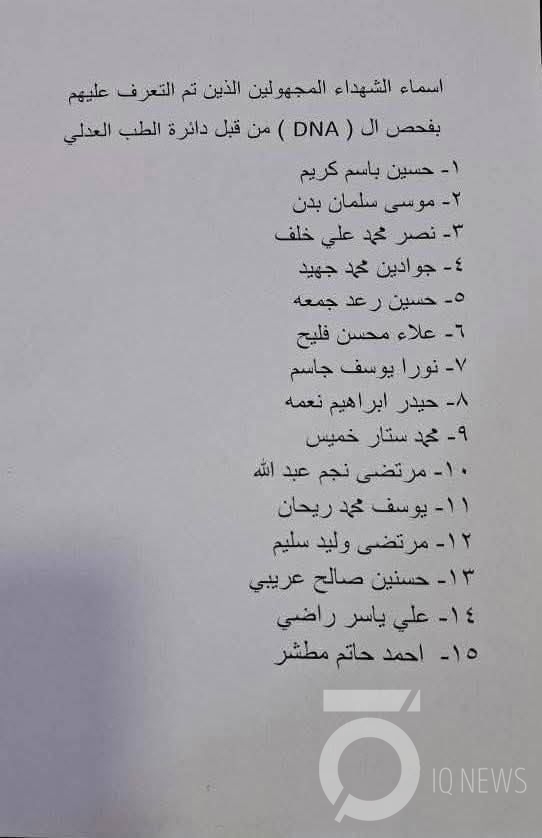 اسماء الشهداء المجهولين الذين تم التعرف عليهم
بفحص ال ( DNA ) من قبل دائرة الطب العدلي
١- حسين باسم كريم
٢- موسى سلمان بدن
٣- نصر محمد علي خلف
٤- جوادين محمد جهيد
٥- حسين رعد جمعه
٦- علاء محسن فليح
٧- نورا يوسف جاسم
٨- حيدر ابراهيم نعمه
٩- محمد ستار خميس
١٠- مرتضى نجم عبد الله
١١- يوسف محمد ريحان
١٢- مرتضى وليد سليم
١٣- حسنين صالح عريبي
١٤- علي ياسر راضي
١٥- احمد حاتم مطشر
IQ NEWS